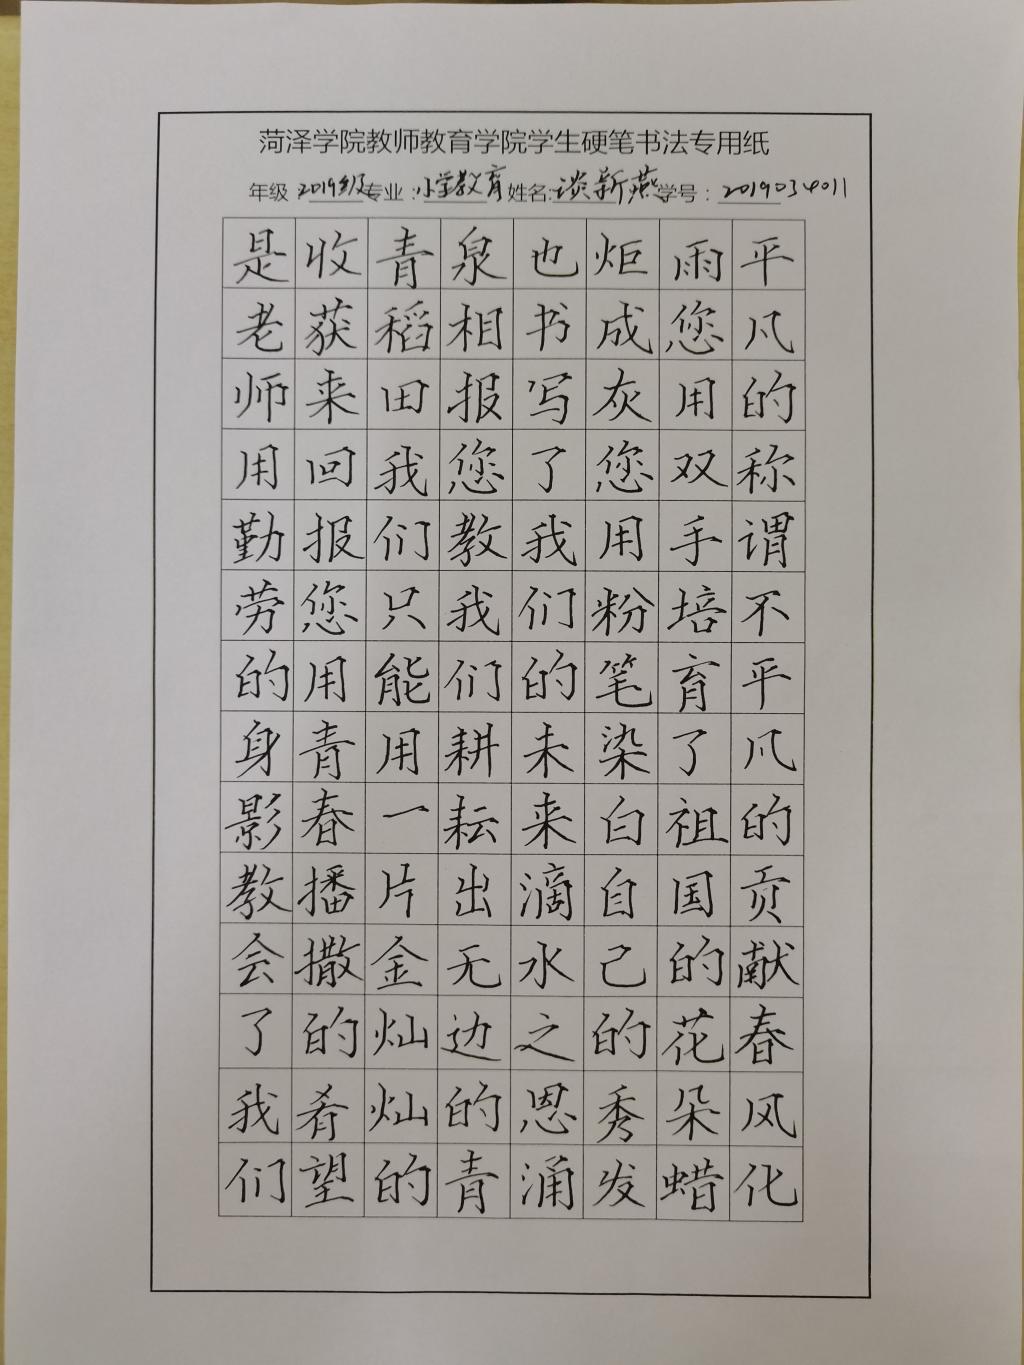 菏泽学院教师教育学院学生硬笔书法专用纸
年级 2019级 专业：小学教育 姓名：谈新燕 学号：2019034011
平凡的称谓不平凡的贡献春风化
雨您用双手培育了祖国的花朵蜡
炬成灰您用粉笔染白自己的秀发
也书写了我们的未来滴水之恩涌
泉相报您教我们耕耘出无边的青
青稻田我们只能用一片金灿灿的
收获来回报您用青春播撒的肴望
是老师用勤劳的身影教会了我们